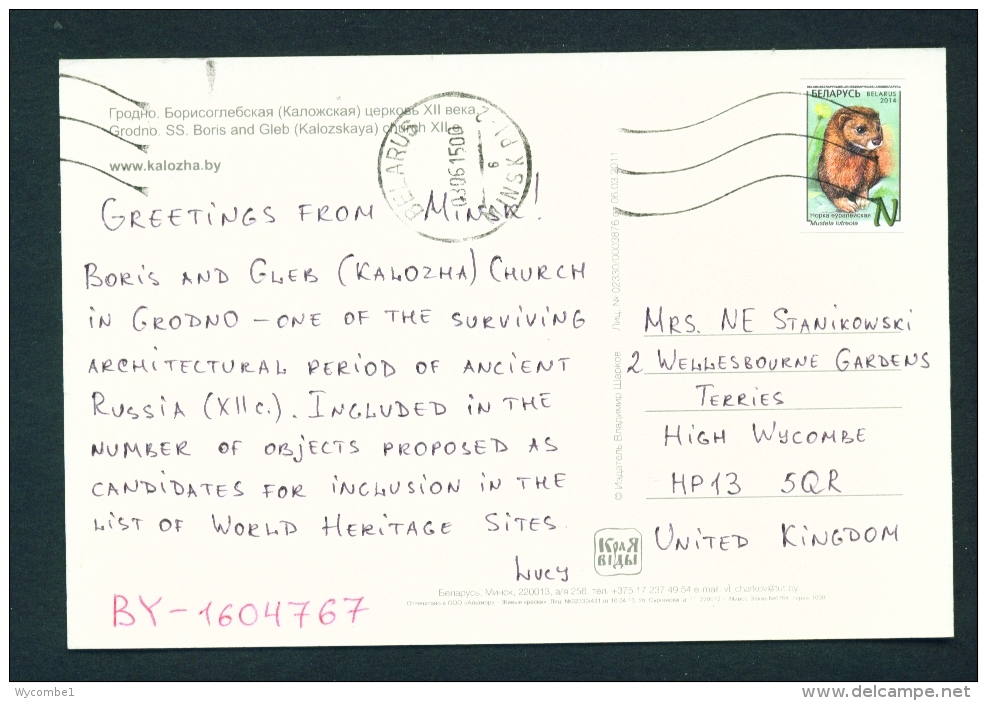 Гродно. Борисоглебская (Каложская) церковь XII века.
Grodno. SS. Boris and Gleb (Kalozskaya) church XII c.
www.kalozha.by
BELARUS
030615 00
MINSK
БЕЛАРУСЬ
BELARUS
2014
Норка еурапейская
Mustela lutreola
N
GREETINGS FROM MINSK!
BORIS AND GLEB (KALOZHA) CHURCH
IN GRODNO – ONE OF THE SURVIVING
ARCHITECTURAL PERIOD OF ANCIENT
RUSSIA (XII c.). INCLUDED IN THE
NUMBER OF OBJECTS PROPOSED AS
CANDIDATES FOR INCLUSION IN THE
LIST OF WORLD HERITAGE SITES.
LUCY
BY-1604767
© Издатель Владимир Шарков Лиц. № 02330/0003876 от 06.03.2011
MRS. NE STANIKOWSKI
2 WELLESBOURNE GARDENS
TERRIES
HIGH WYCOMBE
HP13 5QR
UNITED KINGDOM
КРАЯ
ВІДЫ
Беларусь, Минск, 220013, а/я 256, тел. +375 17 237 49 54 e-mail: vl_charkov@tut.by
Wycombe1
www.delcampe.net